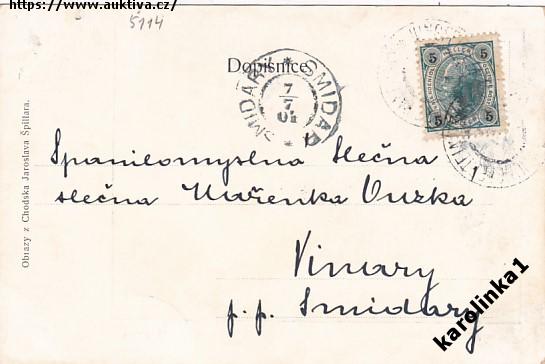 https://www.auktiva.cz/
5114
Dopisnice
SMIDARY * SMIDAR
7
7
04
5 HELLER 5
5 5
Obrazy z Chodska Jaroslava Špillara.
Spanilomyslna Slečna
slečna Mařenka Vuzka
Vinary
p. p. Smidary
karolinka1